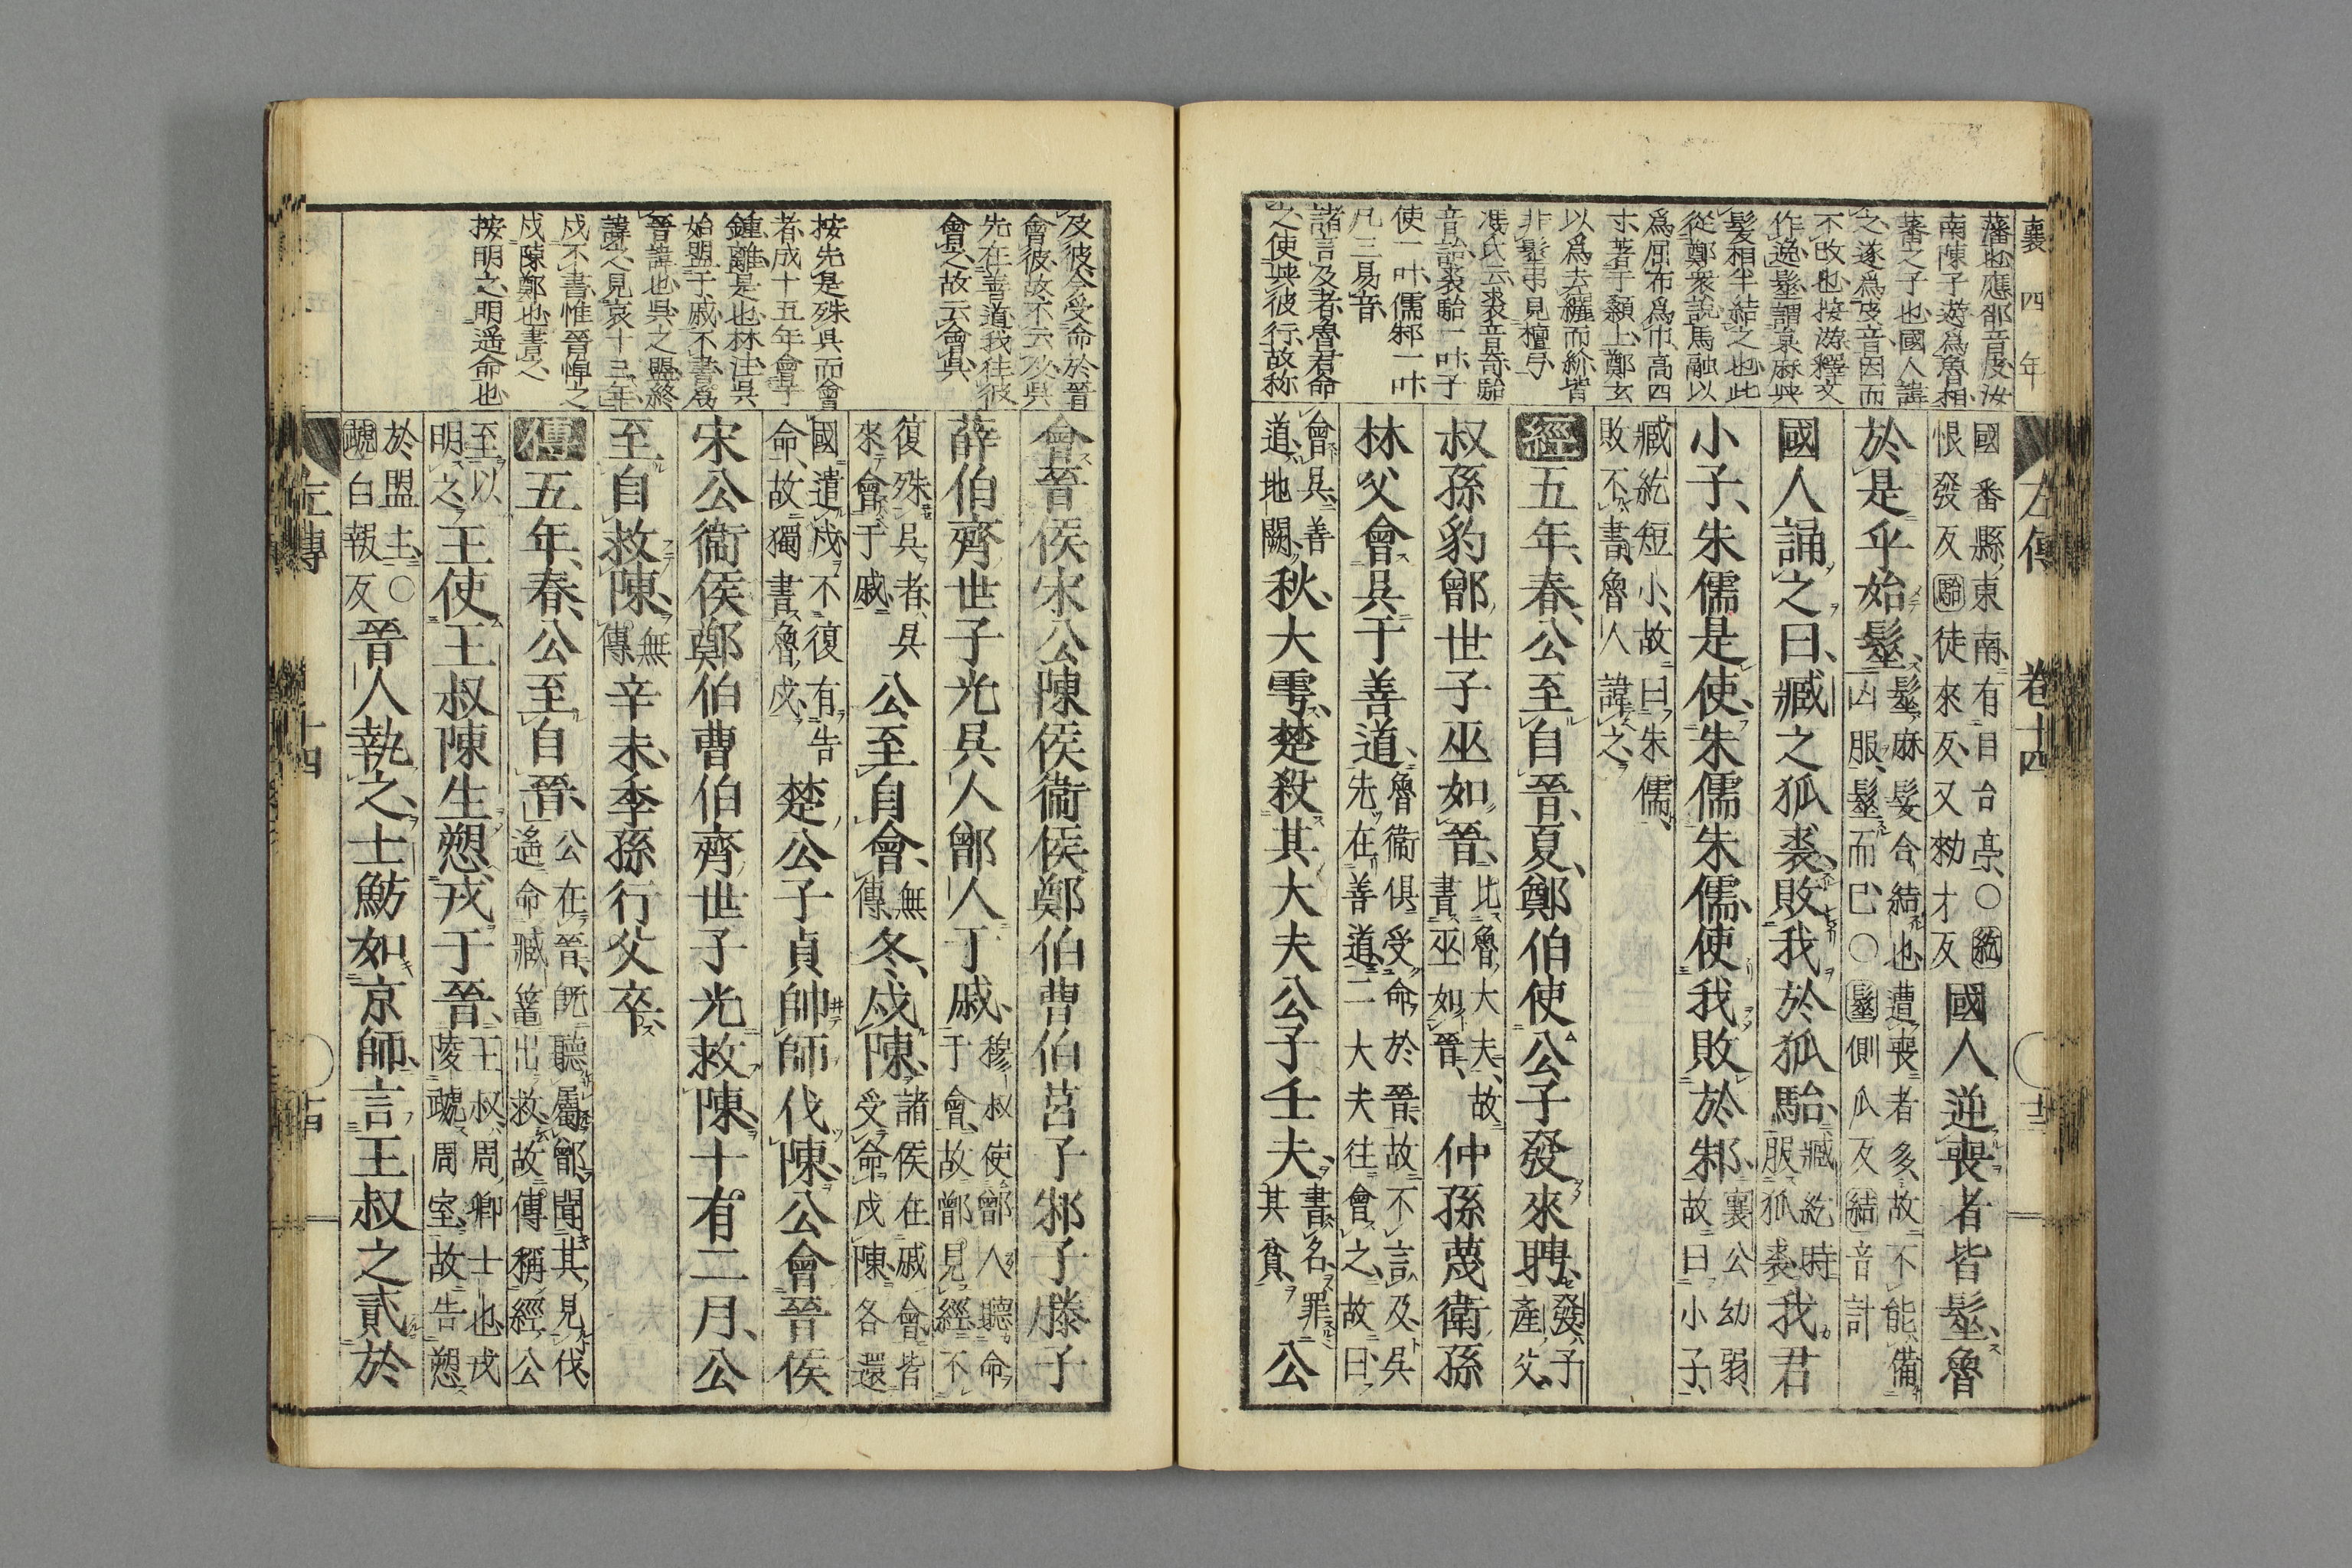 襄四年
藩也應劭音皮汝
南陳子游爲魯相
蕃之子也國人諱
之遂爲皮音因而
不改也按游釋文
作逸髽謂枲麻與
髮相半結之也此
從鄭衆説馬融以
爲屈布爲巾高四
寸著于顙上鄭玄
以爲去纚而紒皆
非髽弔見檀弓
馮氏云裘音奇駘
音詒裘駘一叶子
使一叶儒邾一叶
凡三易音
諸言及者魯君命
之使與彼行故称
左傳 卷十四 十三
國番縣東南有目台亭〇紇
恨發反駘徒來反又勑才反國人逆喪者皆髽魯
於是乎始髽髽麻髮合結也遭喪者多故不能備
凶服髽而已〇髽側瓜反結音計
國人誦之曰臧之狐裘敗我於狐駘臧紇時
服狐裘我君
小子朱儒是使朱儒朱儒使我敗於邾襄公幼弱
故曰小子
臧紇短小故曰朱儒
敗不書魯人諱之
經五年春公至自晉夏鄭伯使公子發來聘發子
產父
叔孫豹鄫世子巫如晉比魯大夫故
書巫如晉仲孫蔑衛孫
林父會吳于善道魯衞俱受命於晉故不言及吳
先在善道二大夫往會之故曰
會吳善
道地闕秋大雩楚殺其大夫公子壬夫書名罪
其貪公
及彼今受命於晉
會彼故不云及呉
先在善道我往彼
會之故云會呉
按先是殊呉而會
者成十五年會于
鍾離是也林注呉
始盟于戚不書爲
晉諱也呉之盟終
諱之見哀十三年
戍不書惟晉悼之
戍陳鄭也書之
按明之明遥命也
會晉侯宋公陳侯衞侯鄭伯曹伯莒子邾子滕子
薛伯齊世子光吳人鄫人于戚穆叔使鄫人聽命
于會故鄫見經不
復殊吳者吳
來會于戚公至自會無
傳冬戍陳諸侯在戚會皆
受命戍陳各還
國遣戍不復有告
命故獨書魯戍楚公子貞帥師伐陳公會晉侯
宋公衞侯鄭伯曹伯齊世子光救陳十有二月公
至自救陳無
傳辛未季孫行父卒
傳五年春公至自晉公在晉既聽屬鄫聞其見伐
遙命臧䇔出救故傳稱經公
至以
明之王使王叔陳生愬戎于晉王叔周卿士也戎
陵虣周室故告愬
於盟主〇
虣白報反晉人執之士魴如京師言王叔之貳於
左傳 十四 十四